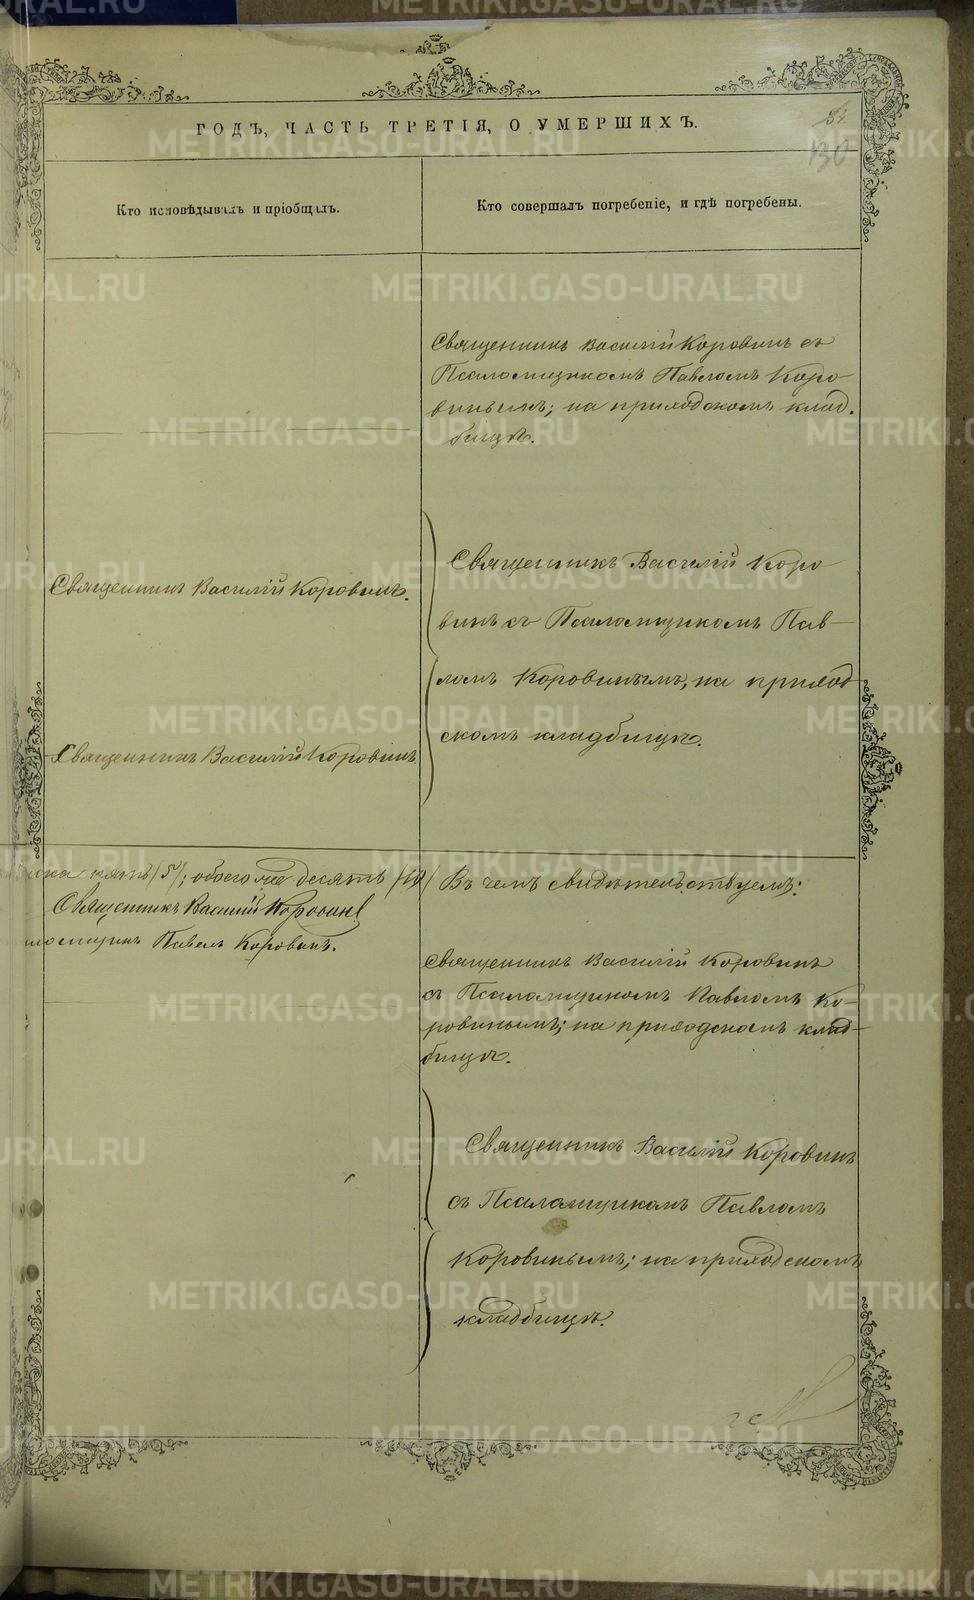 METRIKI.GASO-URAL.RU
ГОДЪ, ЧАСТЬ ТРЕТІЯ, О УМЕРШИХЪ.
130
Кто исповѣдывалъ и пріобщалъ.
Кто совершалъ погребеніе, и гдѣ погребены.
Священникъ Василій Коровинъ съ
Псаломщикомъ Павломъ Коро
винымъ; на приходскомъ клад-
бищѣ.
Священникъ Василій Коровинъ.
Священникъ Василій Коро
винъ съ Псаломщикомъ Пав-
ломъ Коровинымъ, на приход
скомъ кладбищѣ.
Священникъ Василій Коровинъ
пола пять (5); обоего же десять (10)
Въ чемъ свидѣтельствуемъ:
Священникъ Василій Коровинъ
Псаломщикъ Павелъ Коровинъ.
Священникъ Василій Коровинъ
съ Псаломщикомъ Павломъ Ко-
ровинымъ; на приходскомъ клад-
бищѣ.
Священникъ Василій Коровинъ
съ Псаломщикомъ Павломъ
Коровинымъ; на приходскомъ
кладбищѣ.